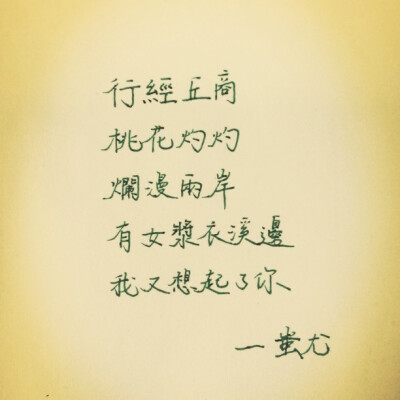 行經丘商
桃花灼灼
爛漫兩岸
有女漿衣溪邊
我又想起了你、
一蚩尤